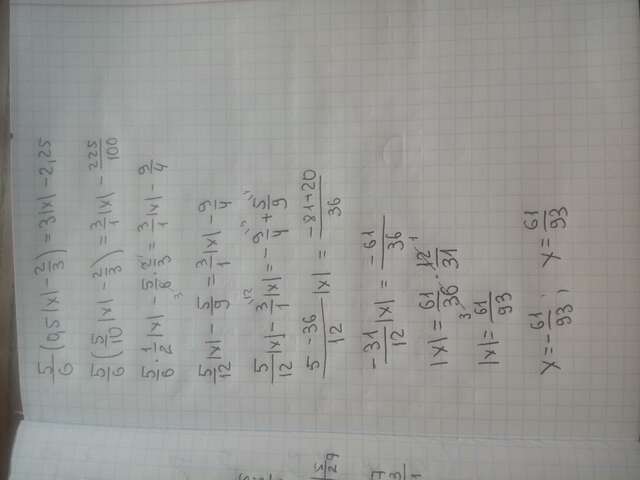 5/6 (0,5|x| - 2/3) = 3|x| - 2,25
5/6 (5/10 |x| - 2/3) = 3/1 |x| - 225/100
5/6 · 1/2 |x| - 5/6 · 2/3 = 3/1 |x| - 9/4
5/12 |x| - 5/9 = 3/1 |x| - 9/4
5/12 |x| - 3/1 |x| = - 9/4 + 5/9
5 - 36/12 |x| = -81+20/36
-31/12 |x| = -61/36
|x| = 61/36 · 12/31
|x| = 61/93
x = - 61/93 ; x = 61/93